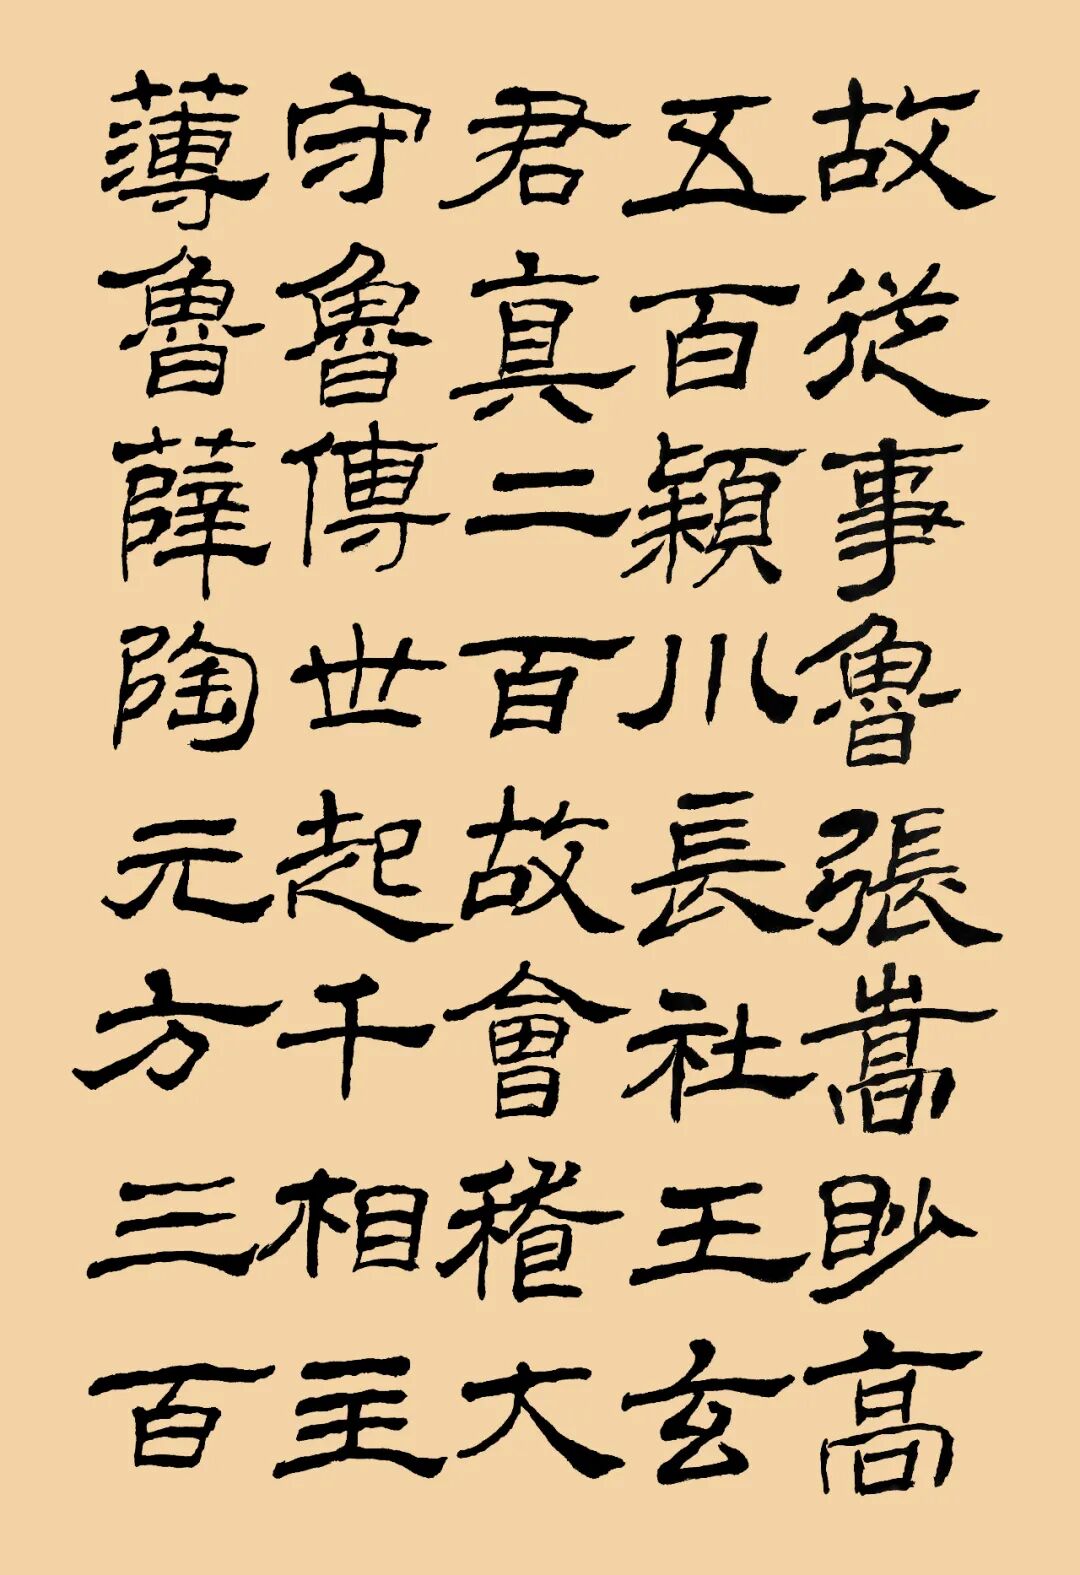 故從事魯張嵩眇高
五百穎川長社王玄
君真二百故會稽大
守魯傳世起千相主
薄魯薛陶元方三百